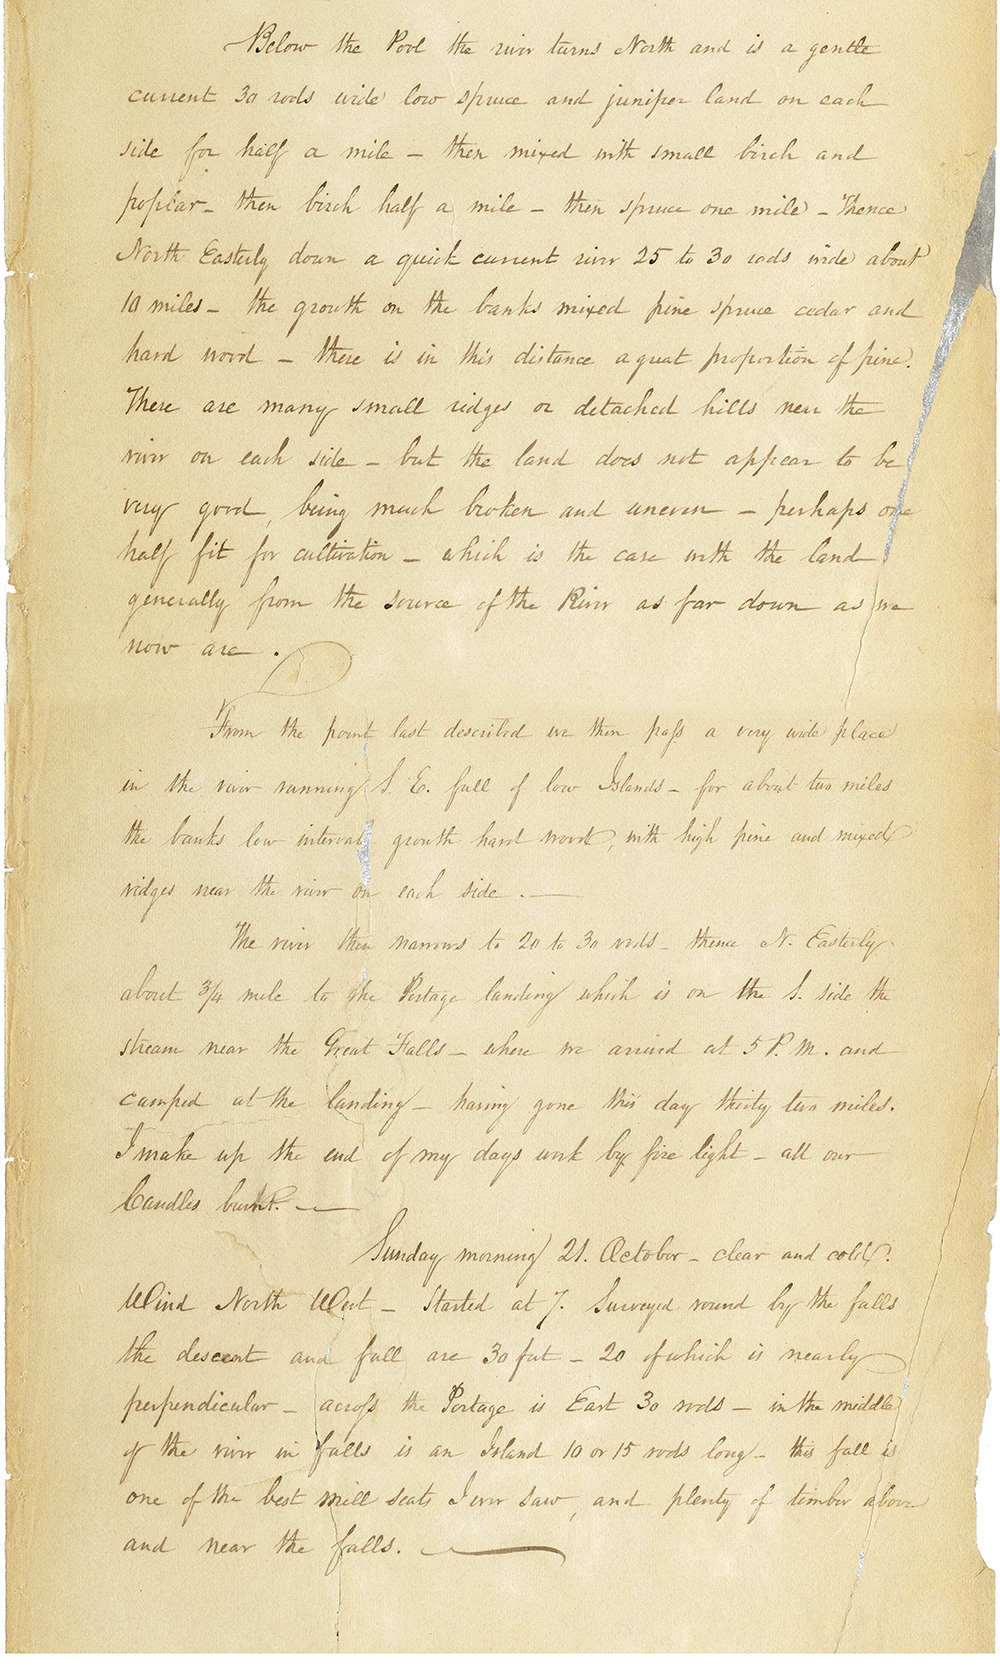 Below the Pool the river turns North and is a gentle
current 30 rods wide low spruce and juniper land on each
side for half a mile – then mixed with small birch and
poplar – then birch half a mile – then spruce one mile – Thence
North Easterly down a quick current river 25 to 30 rods wide about
10 miles – the growth on the banks mixed pine spruce cedar and
hard wood – there is in this distance a great proportion of pine.
There are many small ridges or detached hills near the
river on each side – but the land does not appear to be
very good, being much broken and uneven – perhaps one
half fit for cultivation – which is the case with the land
generally from the source of the River as far down as we
now are.
From the point last described we then pass a very wide place
in the river running S. E. full of low Islands – for about two miles
the banks low interval growth hard wood, with high pine and mixed
ridges near the river on each side. —
The river then narrows to 20 to 30 rods – thence N. Easterly
about 3/4 mile to the Portage landing which is on the S. side the
stream near the Great Falls – where we arrived at 5 P. M. and
camped at the landing – having gone this day thirty two miles.
I make up the end of my days work by fire light – all our
Candles burnt. —
Sunday morning 21. October – clear and cold.
Wind North West – Started at 7. Surveyed round by the falls
the descent and fall are 30 feet – 20 of which is nearly
perpendicular – across the Portage is East 30 rods – in the middle
of the river in falls is an Island 10 or 15 rods long – this fall is
one of the best mill seats I ever saw, and plenty of timber above
and near the falls. —